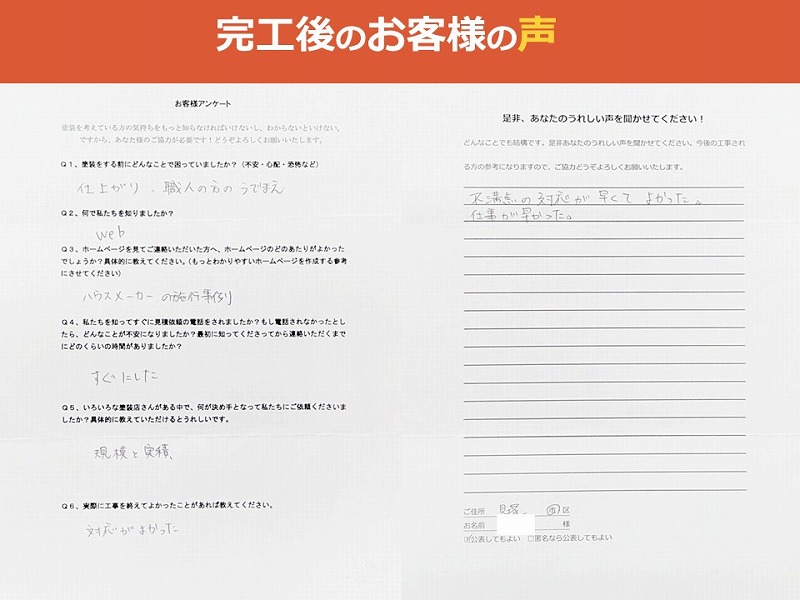 完工後のお客様の声
お客様アンケート
塗装を考えている方の気持ちをもっと知らなければいけないし、わからないといけない。
ですから、あなた様のご協力が必要です！どうぞよろしくお願いいたします。
Q１、塗装をする前にどんなことで困っていましたか？（不安・心配・恐怖など）
仕上がり、職人の方のうでまえ
Q２、何で私たちを知りましたか？
web
Q３、ホームページを見てご連絡いただいた方へ、ホームページのどのあたりがよかった
でしょうか？具体的に教えてください。（もっとわかりやすいホームページを作成する参考
にさせてください）
ハウスメーカーの施行事例
Q４、私たちを知ってすぐに見積依頼の電話をされましたか？もし電話されなかったとし
たら、どんなことが不安になりましたか？最初に知ってくださってから連絡いただくまで
にどのくらいの時間がありましたか？
すぐにした
Q５、いろいろな塗装店さんがある中で、何が決め手となって私たちにご依頼くださいま
したか？具体的に教えていただけるとうれしいです。
規模と実積、
Q６、実際に工事を終えてよかったことがあれば教えてください。
対応がよかった
是非、あなたのうれしい声を聞かせてください！
どんなことでも結構です。是非あなたのうれしい声を聞かせてください。今後の工事され
る方の参考になりますので、ご協力どうぞよろしくお願いいたします。
不満点の対応が早くてよかった。
仕事が早かった。
ご住所 貝塚 市区
お名前 様
☑公表してもよい □匿名なら公表してもよい